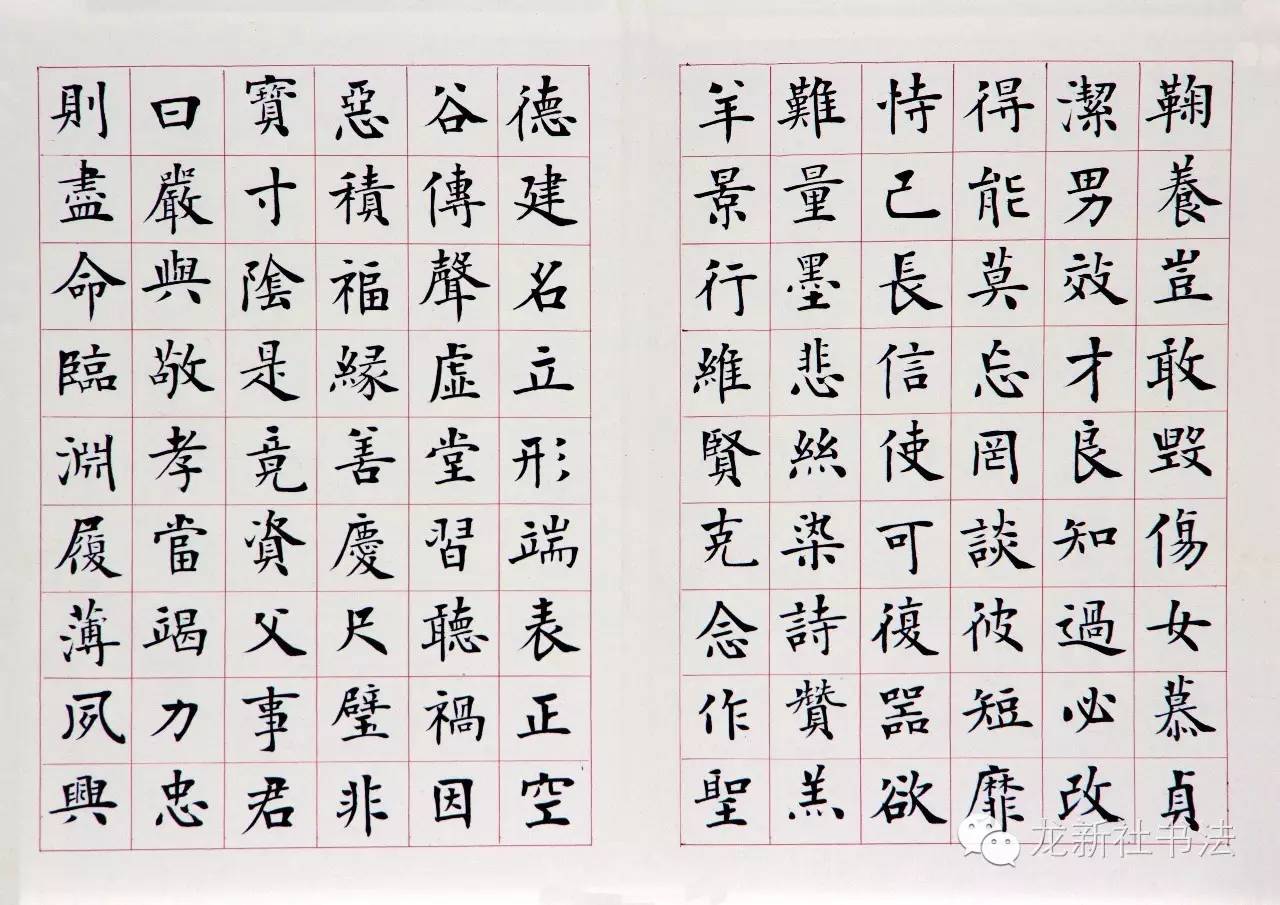 鞠養豈敢毀傷女慕貞
潔男效才良知過必改
得能莫忘罔談彼短靡
恃己長信使可復器欲
難量墨悲絲染詩贊羔
羊景行維賢克念作聖
德建名立形端表正空
谷傳聲虛堂習聽禍因
惡積福緣善慶尺璧非
寶寸陰是竟資父事君
曰嚴與敬孝當竭力忠
則盡命臨淵履薄夙興
龙新社书法